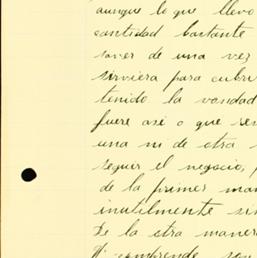 aunque lo que llevo
cantidad bastante
saver de una vez
sirviera para cubri
tenido la vondad
fuere asi o que
una ni de otra
seguir el negocio,
de la primer man
inutilmente
De la otra manera